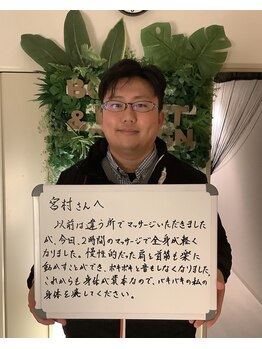 宮村さんへ
以前は違う所でマッサージいただきました
が、今日、2時間のマッサージで全身が軽く
なりました。慢性的だった肩も首筋も楽に
動かすことができ、ボキボキと音もしなくなりました。
これからも身体が資本なので、バキバキの私の
身体を楽してください。